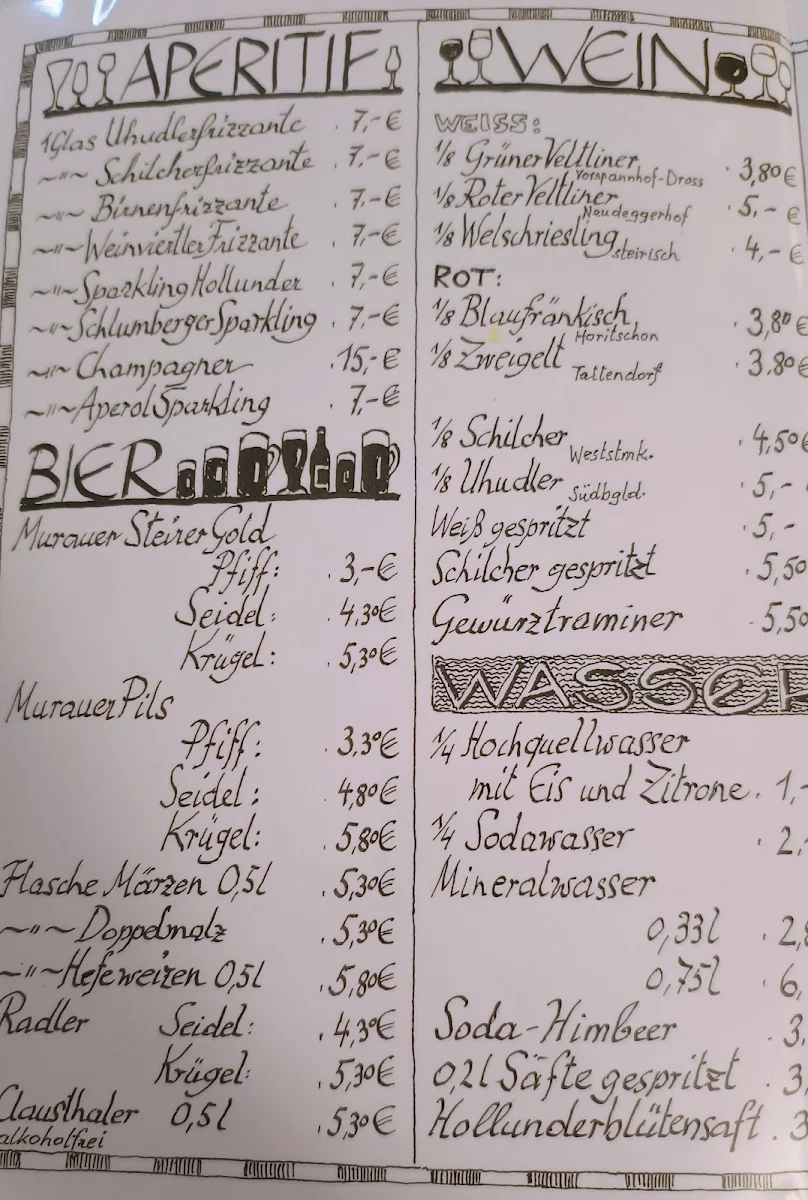 APERITIF
1Glas Uhudlerfrizzante . 7,-€
~"~ Schilcherfrizzante . 7,-€
~"~ Birnenfrizzante . 7,-€
~"~ Weinviertler Frizzante . 7,-€
~"~ Sparkling Hollunder . 7,-€
~"~ Schlumberger Sparkling . 7,-€
~"~ Champagner .15,-€
~"~ Aperol Sparkling . 7,-€
BIER
Murauer Steirer Gold
Pfiff: . 3,-€
Seidel: . 4,30€
Krügel: . 5,30€
Murauer Pils
Pfiff: . 3,30€
Seidel: . 4,80€
Krügel: . 5,80€
Flasche Märzen 0,5l . 5,30€
~"~ Doppelmalz . 5,30€
~"~ Hefeweizen 0,5l . 5,80€
Radler Seidel: . 4,30€
Krügel: . 5,30€
Clausthaler 0,5l . 5,30€
alkoholfrei
WEIN
WEISS:
1/8 Grüner Veltliner . 3,80€
Vorspannhof-Dross
1/8 Roter Veltliner . 5,-€
Neudeggerhof
1/8 Welschriesling . 4,-€
steirisch
ROT:
1/8 Blaufränkisch . 3,80€
Horitschon
1/8 Zweigelt . 3,80€
Tattendorf
1/8 Schilcher . 4,50€
Weststmk.
1/8 Uhudler . 5,-
Südbgld.
Weiß gespritzt . 5,-
Schilcher gespritzt . 5,50
Gewürztraminer . 5,50
WASSER
1/4 Hochquellwasser
mit Eis und Zitrone . 1,-
1/4 Sodawasser . 2,-
Mineralwasser
0,33l . 2,8
0,75l . 6,
Soda-Himbeer . 3,
0,2l Säfte gespritzt . 3
Hollunderblütensaft . 3